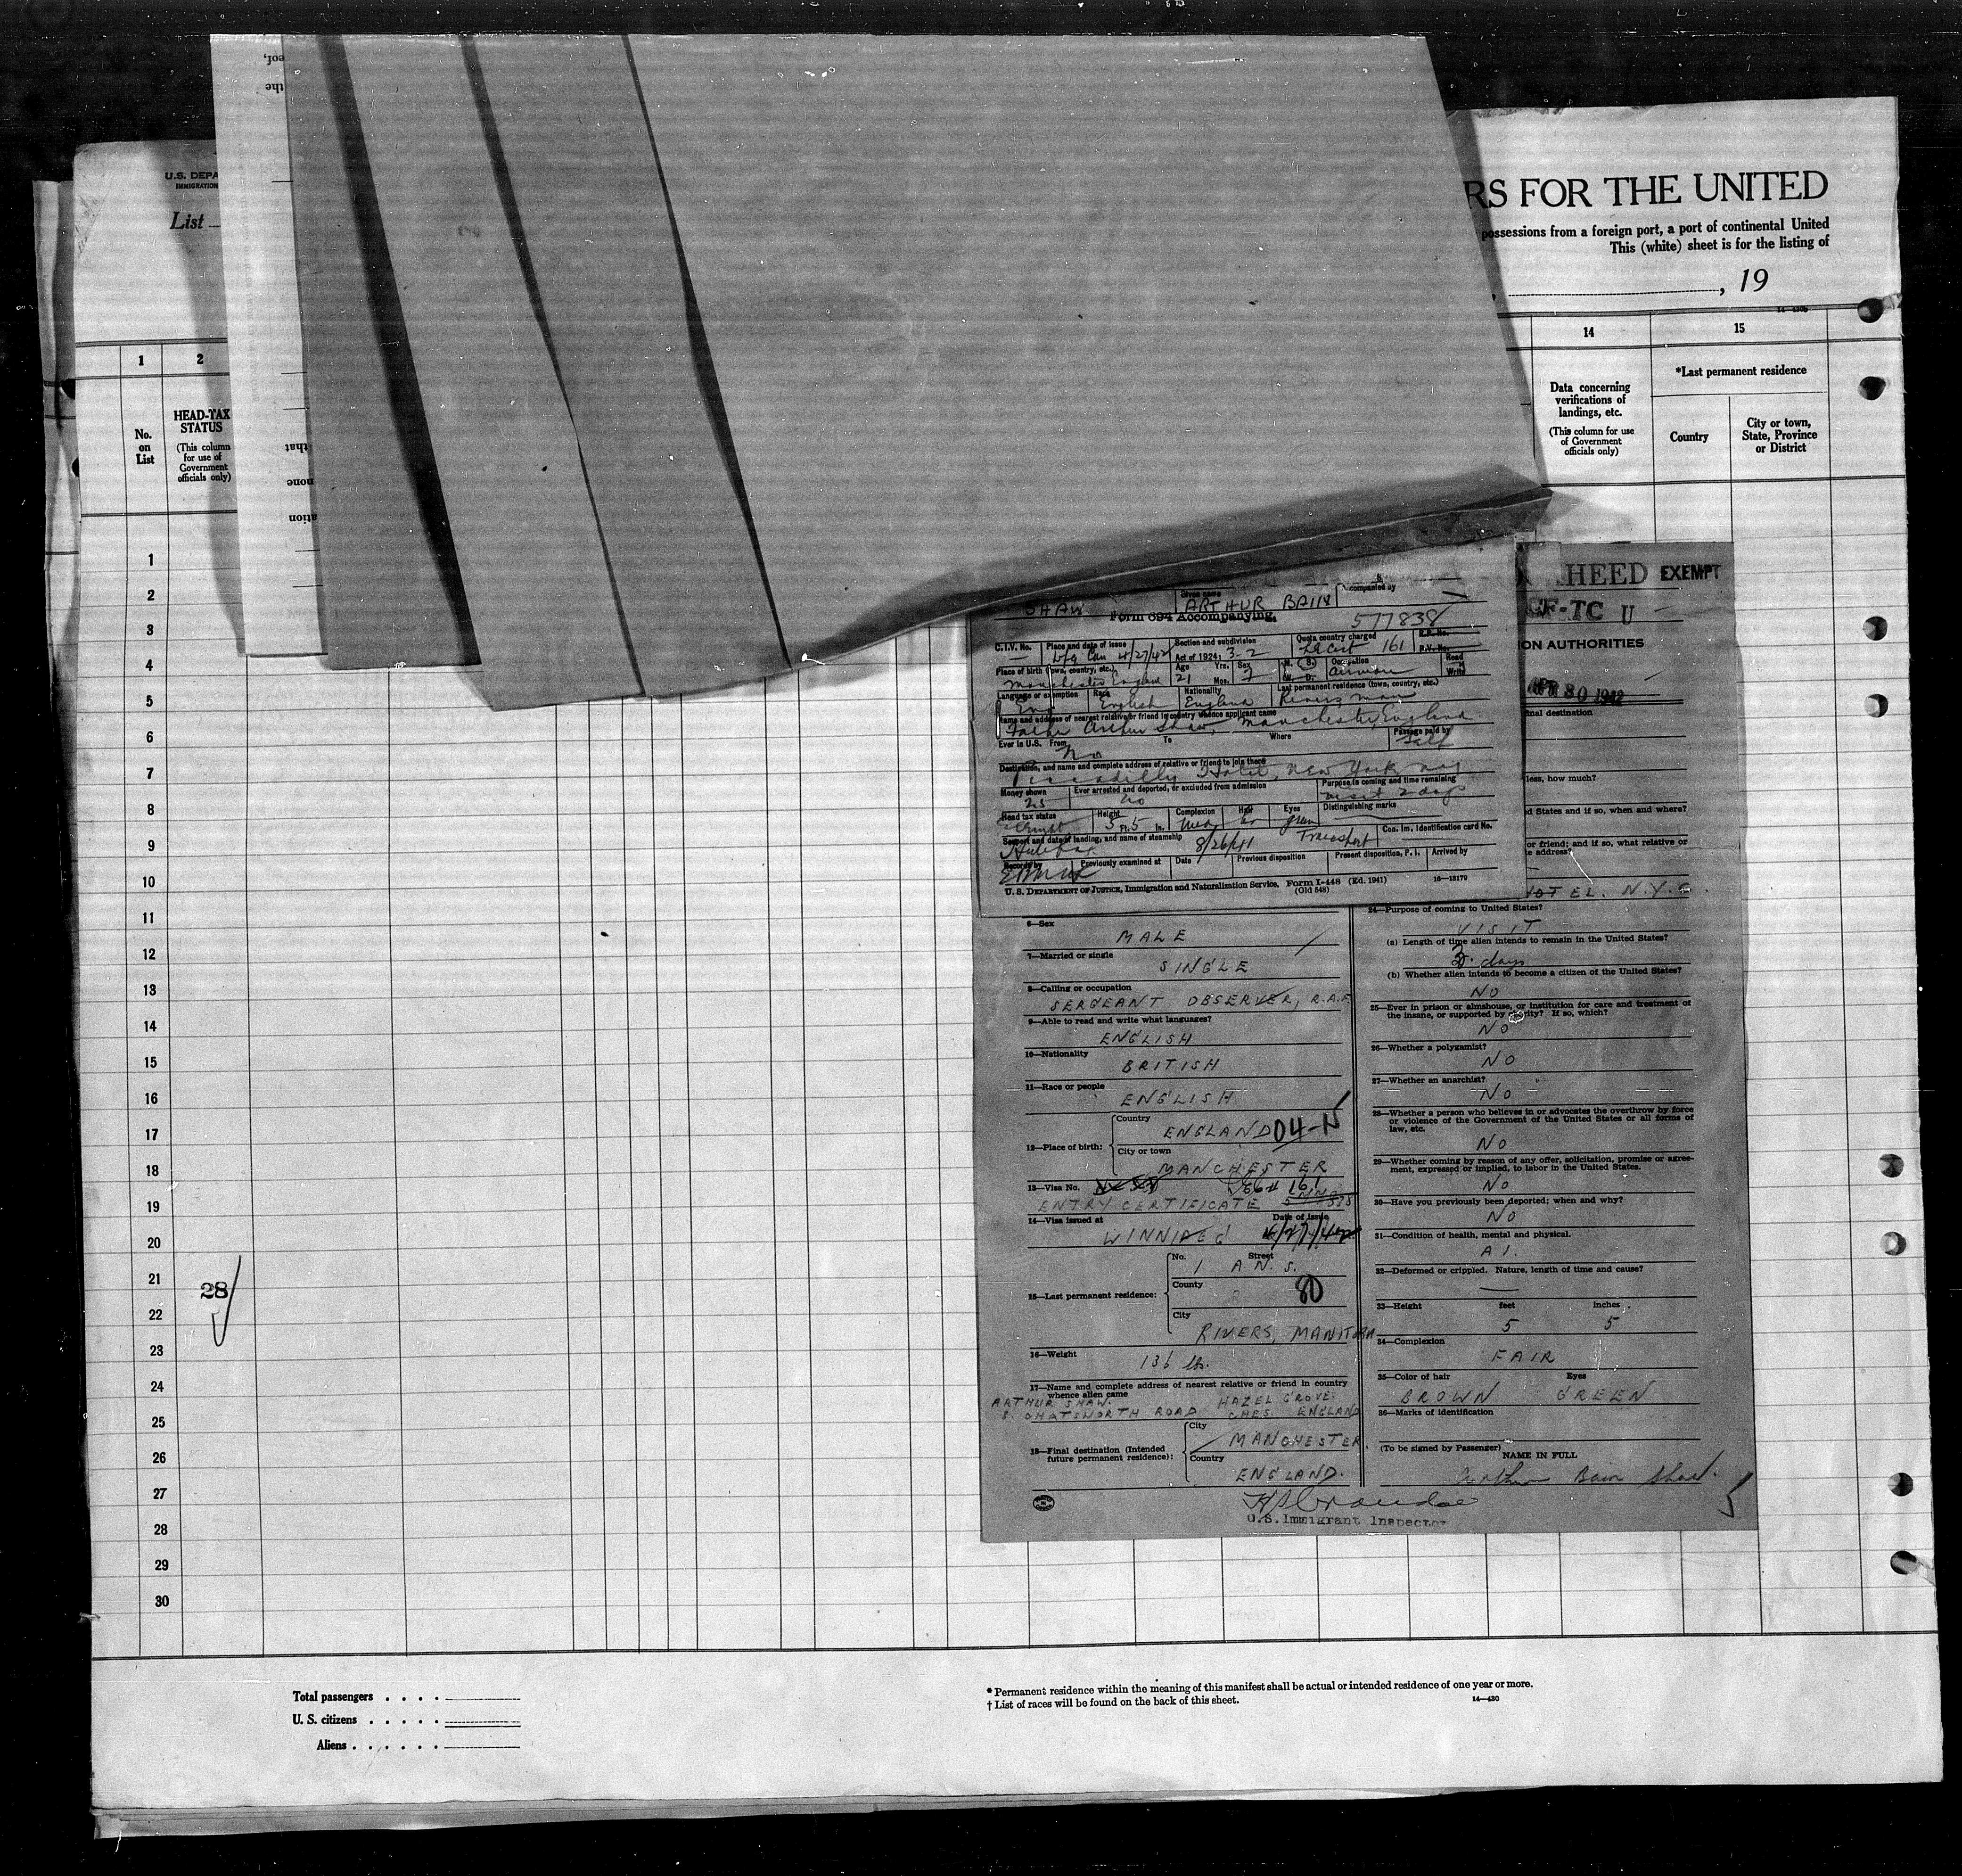 U.S. DEPA
IMMIGRATION
List
RS FOR THE UNITED
possessions from a foreign port, a port of continental United
This (white) sheet is for the listing of
, 19
1
2
14
15
No.
on
List
HEAD-TAX
STATUS
(This column
for use of
Government
officials only)
Data concerning
verifications of
landings, etc.
(This column for use
of Government
officials only)
*Last permanent residence
Country
City or town,
State, Province
or District
eof,
the
that
none
ation
1
2
3
4
5
6
7
8
9
10
11
12
13
14
15
16
17
18
19
20
21
22
23
24
25
26
27
28
29
30
28
SHAW
Given name
ARTHUR BAIN
Accompanied by
Form 694 Accompanying.
577838
C.I.V. No.
Place and date of issue
Wpg Can 4/27/42
Section and subdivision
Act of 1924: 3-2
Quota country charged
161
R.P. No.
R.V. No.
Place of birth (town, country, etc.)
Manchester England
Age
21
Yrs.
Mos.
Sex
M. S.
W. D.
Occupation
airman
Read
Write
Language or exemption
Eng
Race
English
Nationality
England
Last permanent residence (town, country, etc.)
Rivers Man
Name and address of nearest relative or friend in country whence applicant came
Father Arthur Shaw, Manchester, England
Ever in U.S. From
No
To
Where
Passage paid by
Self
Destination, and name and complete address of relative or friend to join there
Piccadilly Hotel, New York, NY
Money shown
25
Ever arrested and deported, or excluded from admission
no
Purpose in coming and time remaining
visit 2 days
Head tax status
Exempt
Height
5 Ft. 5 In.
Complexion
Med
Hair
br
Eyes
green
Distinguishing marks
Seaport and date of landing, and name of steamship
Halifax 8/26/41 Transport
Con. Im. Identification card No.
Records by
Previously examined at
Date
Previous disposition
Present disposition, P. I.
Arrived by
U. S. DEPARTMENT OF JUSTICE, Immigration and Naturalization Service. Form I-448 (Ed. 1941)
(Old 548)
16—13179
HEED EXEMPT
GF-TC U
ION AUTHORITIES
APR 30 1942
inal destination
less, how much?
d States and if so, when and where?
or friend; and if so, what relative or
e address?
HOTEL. N.Y.C.
6—Sex
MALE
7—Married or single
SINGLE
8—Calling or occupation
SERGEANT OBSERVER, R.A.F.
9—Able to read and write what languages?
ENGLISH
10—Nationality
BRITISH
11—Race or people
ENGLISH
12—Place of birth:
Country
ENGLAND 04-N
City or town
MANCHESTER
13—Visa No.
161
ENTRY CERTIFICATE 577838
14—Visa issued at
WINNIPEG
Date of issue
4/27/42
15—Last permanent residence:
No.
Street
1 A.N.S.
County
80
City
RIVERS, MANITOBA
16—Weight
136 lbs.
17—Name and complete address of nearest relative or friend in country
whence alien came
ARTHUR SHAW. HAZEL GROVE.
5. CHATSWORTH ROAD CHES. ENGLAND
18—Final destination (Intended
future permanent residence):
City
MANCHESTER.
Country
ENGLAND.
U.S. Immigrant Inspector
24—Purpose of coming to United States?
VISIT
(a) Length of time alien intends to remain in the United States?
2 days
(b) Whether alien intends to become a citizen of the United States?
NO
25—Ever in prison or almshouse, or institution for care and treatment of
the insane, or supported by charity? If so, which?
NO
26—Whether a polygamist?
NO
27—Whether an anarchist?
NO
28—Whether a person who believes in or advocates the overthrow by force
or violence of the Government of the United States or all forms of
law, etc.
NO
29—Whether coming by reason of any offer, solicitation, promise or agree-
ment, expressed or implied, to labor in the United States.
NO
30—Have you previously been deported; when and why?
NO
31—Condition of health, mental and physical.
A1.
32—Deformed or crippled. Nature, length of time and cause?
33—Height
feet
inches
5 5
34—Complexion
FAIR
35—Color of hair
Eyes
BROWN GREEN
36—Marks of identification
(To be signed by Passenger)
NAME IN FULL
Arthur Bain Shaw.
Total passengers . . . .
U. S. citizens . . . . .
Aliens . . . . . .
* Permanent residence within the meaning of this manifest shall be actual or intended residence of one year or more.
† List of races will be found on the back of this sheet.
14—430